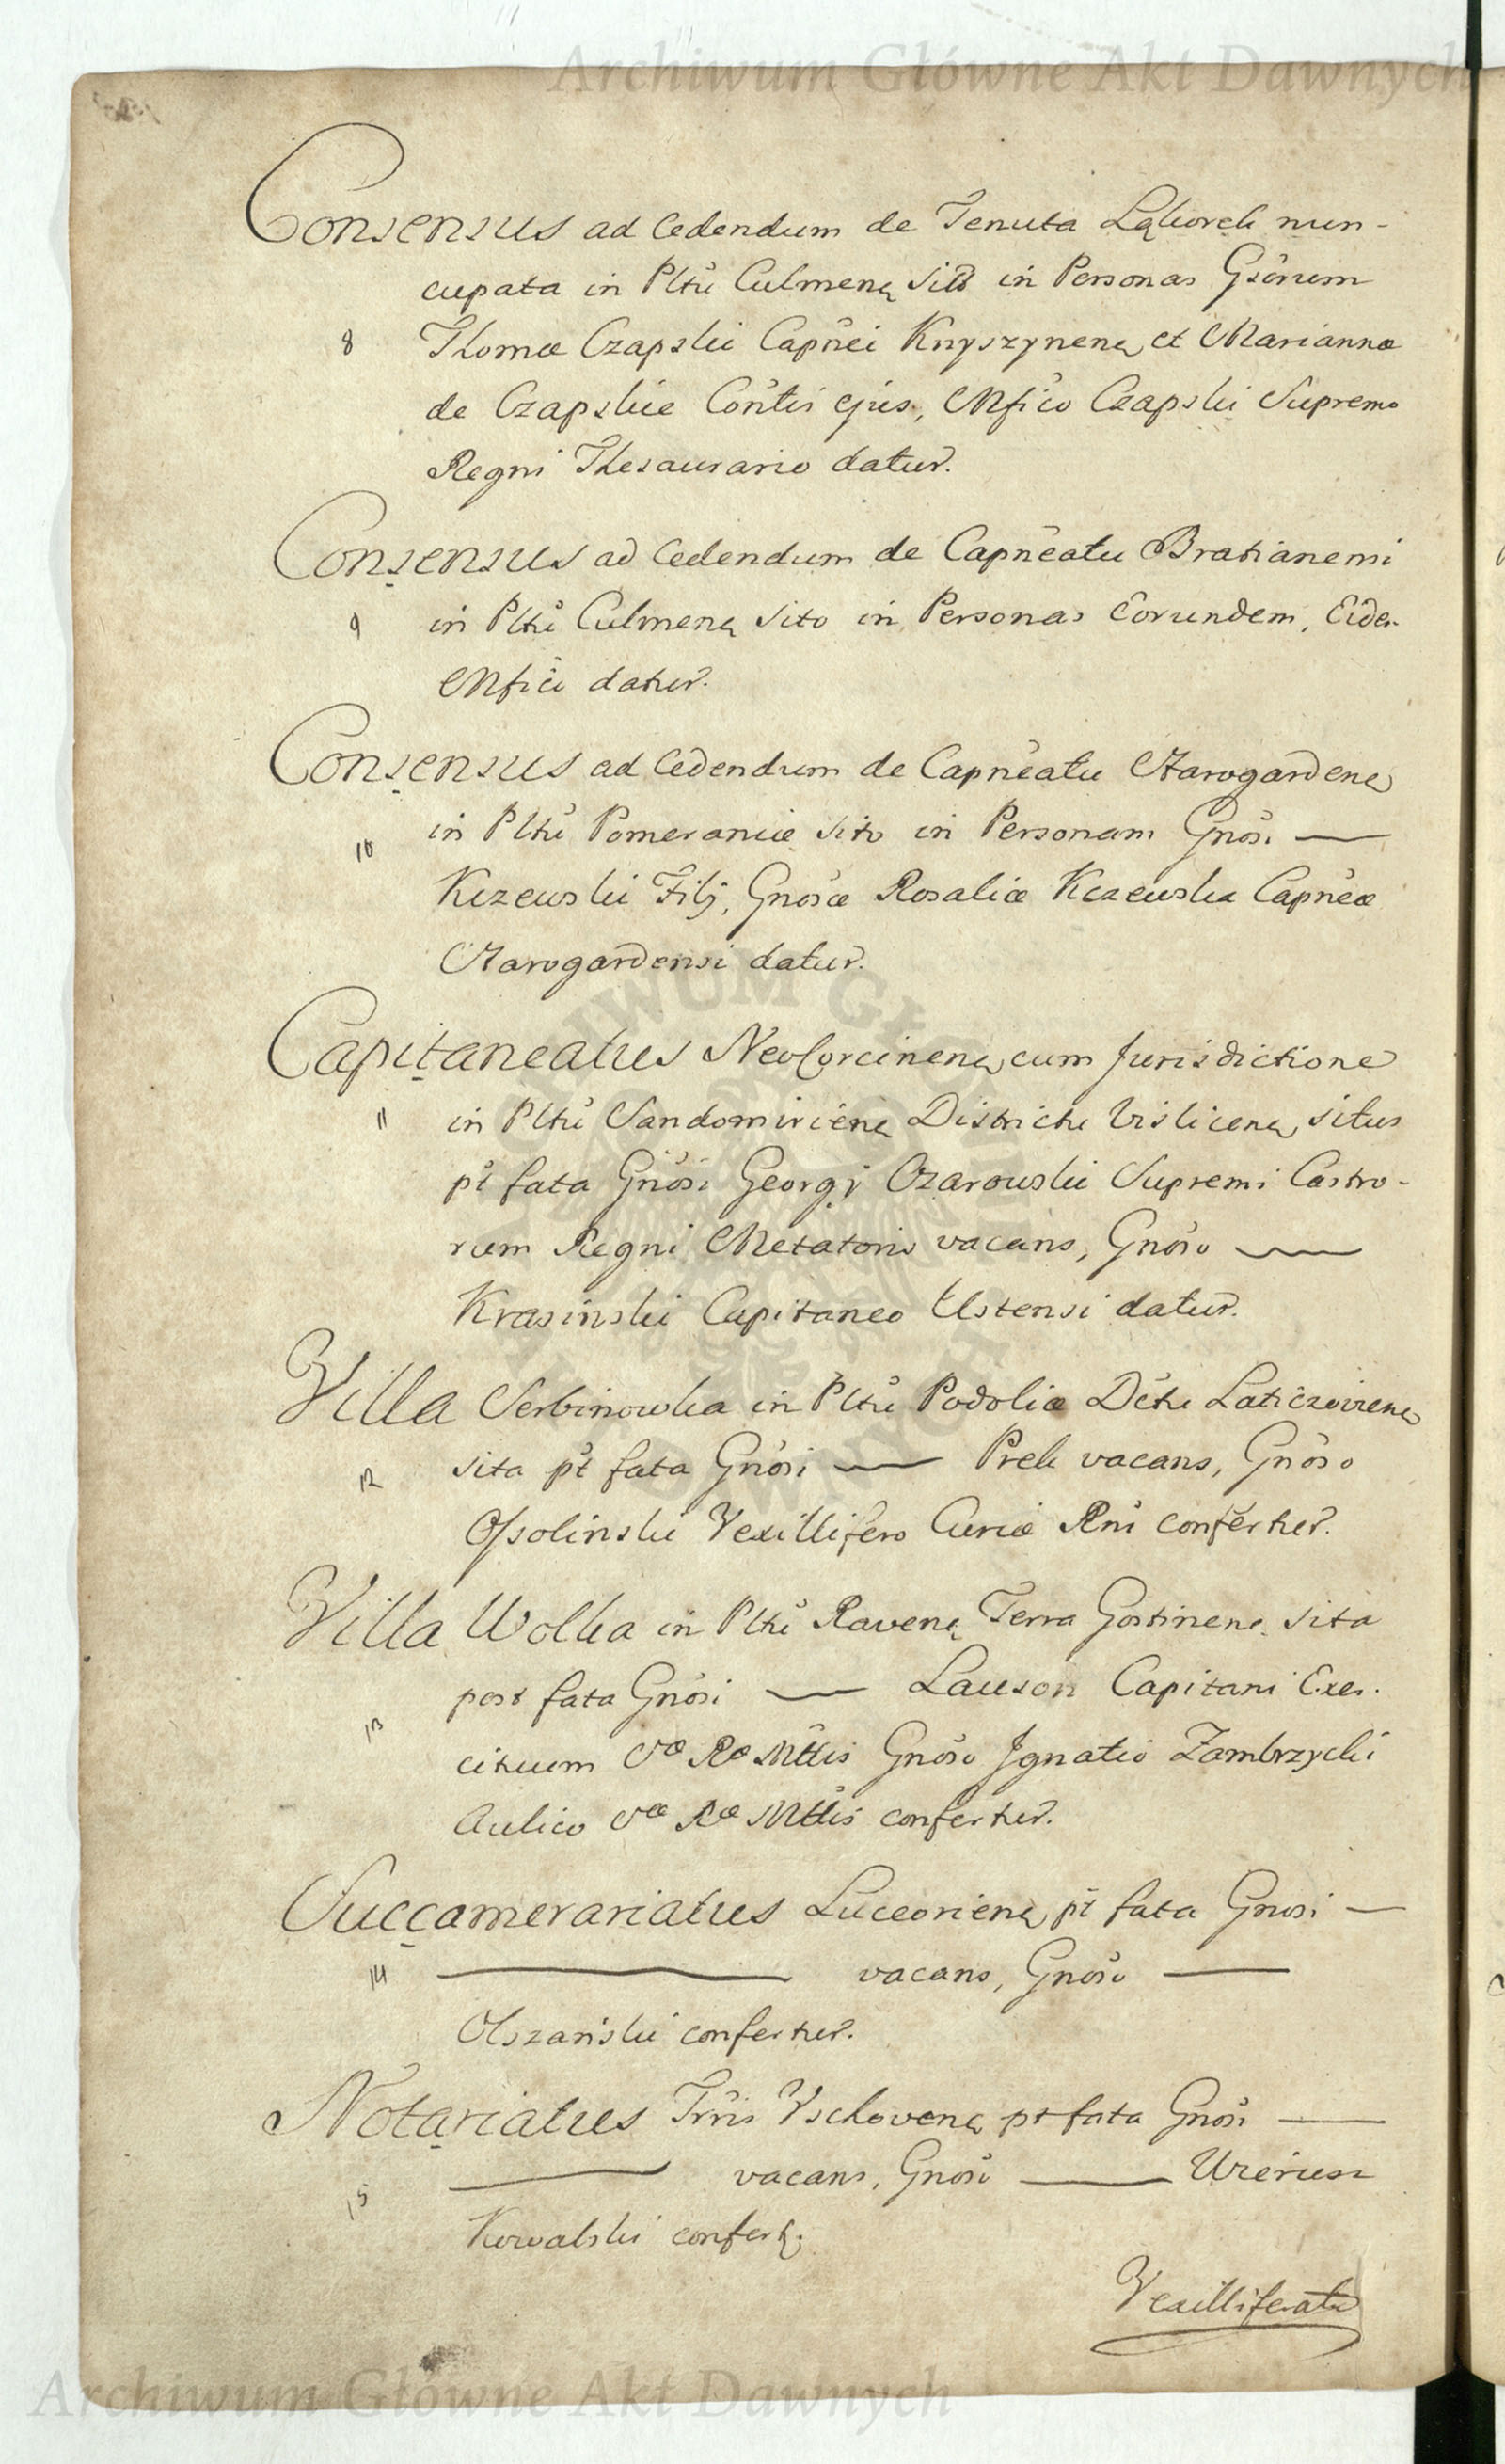 Archiwum Główne Akt Dawnych
Consensus ad Cedendum de Tenuta Ląkorek nun-
cupata in Pltũ Culmenę in Personas Gsõrum
8 Thomæ Czapski Capñei Knyszynenę et Mariannæ
de Czapskie Cõntis ejus, Mfico Czapski Supremo
Regni Thesaurario datur.
Consensus ad Cedendum de Capñeatu Bratianensi
9 in Pltũ Culmenę Sito in Personas Eorundem, Eidem
Mfici datur.
Consensus ad Cedendum de Capñeatu Starogardenę
10 in Pltũ Pomeraniæ Sito in Personam Gnõsi —
Kczewski Filj, Gnõsæ Rosaliæ Kczewska Capñeæ
Starogardensi datur.
Capitaneatus NeoCorcinenę cum Jurisdictione
11 in Pltũ Sandomirienę Districtu Vislicenę situs
pt fata Gnõsi Georgj Ozarowski Supremi Castro-
rum Regni Metatoris vacans, Gnõso —
Krasinski Capitaneo Ustensi datur.
Villa Serbinowka in Pltũ Podoliæ Dctu Laticzovienę
12 sita pt fata Gnõsi — Prek vacans, Gnõso
Ossolinski Vexillifero Curiæ Rni confertur.
Villa Wolka in Pltũ Ravenę Terra Gostinenę sita
post fata Gnõsi — Lauson Capitani Exer-
13 cituum Sæ Ræ Mttis Gnõso Jgnatio Zambrzycki
Aulico Sæ Ræ Mttis confertur.
Succamerariatus Luceorienę pt fata Gnosi —
14 — vacans, Gnõso —
Olszański confertur.
Notariatus Trris Vschovenę pt fata Gnõsi —
15 — vacans, Gnosi —
Kowalski confert.
Vexilliferatu
Archiwum Główne Akt Dawnych